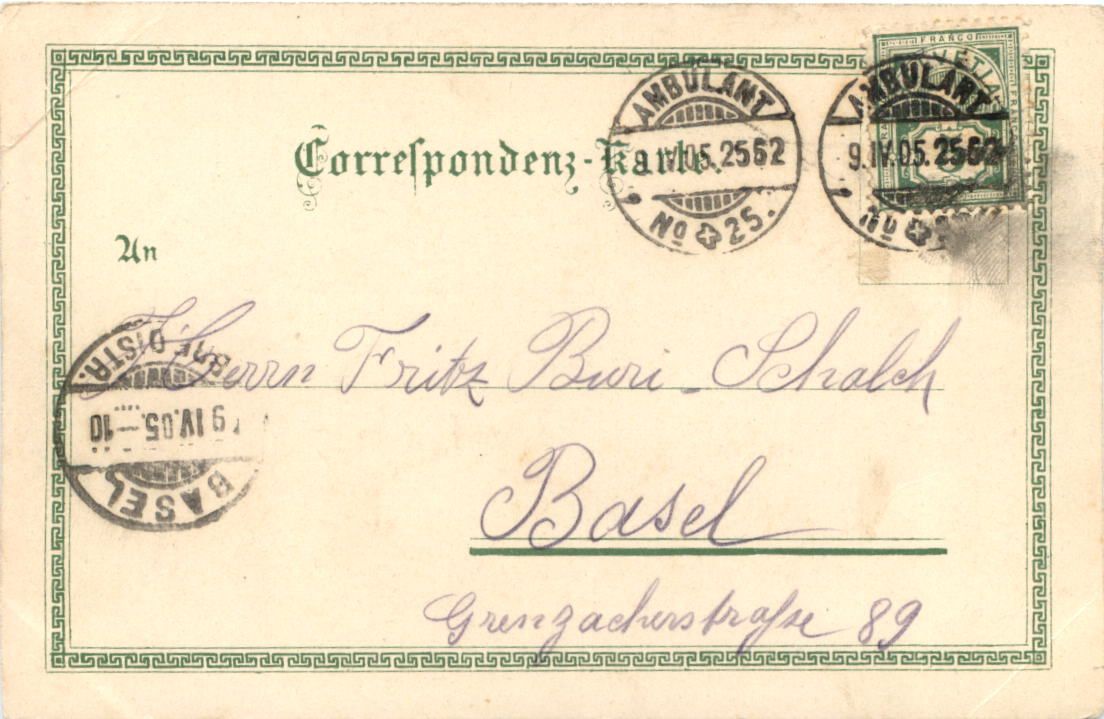 FRANCO
HELVETIA
Correspondenz-Karte.
AMBULANT
9.IV.05.2562
No 25.
AMBULANT
9.IV.05.2562
No
An
Herrn Fritz Buri-Schalch
Basel
Grenzacherstraße 89
BASEL
9 IV.05.–10
BRE DISTR.